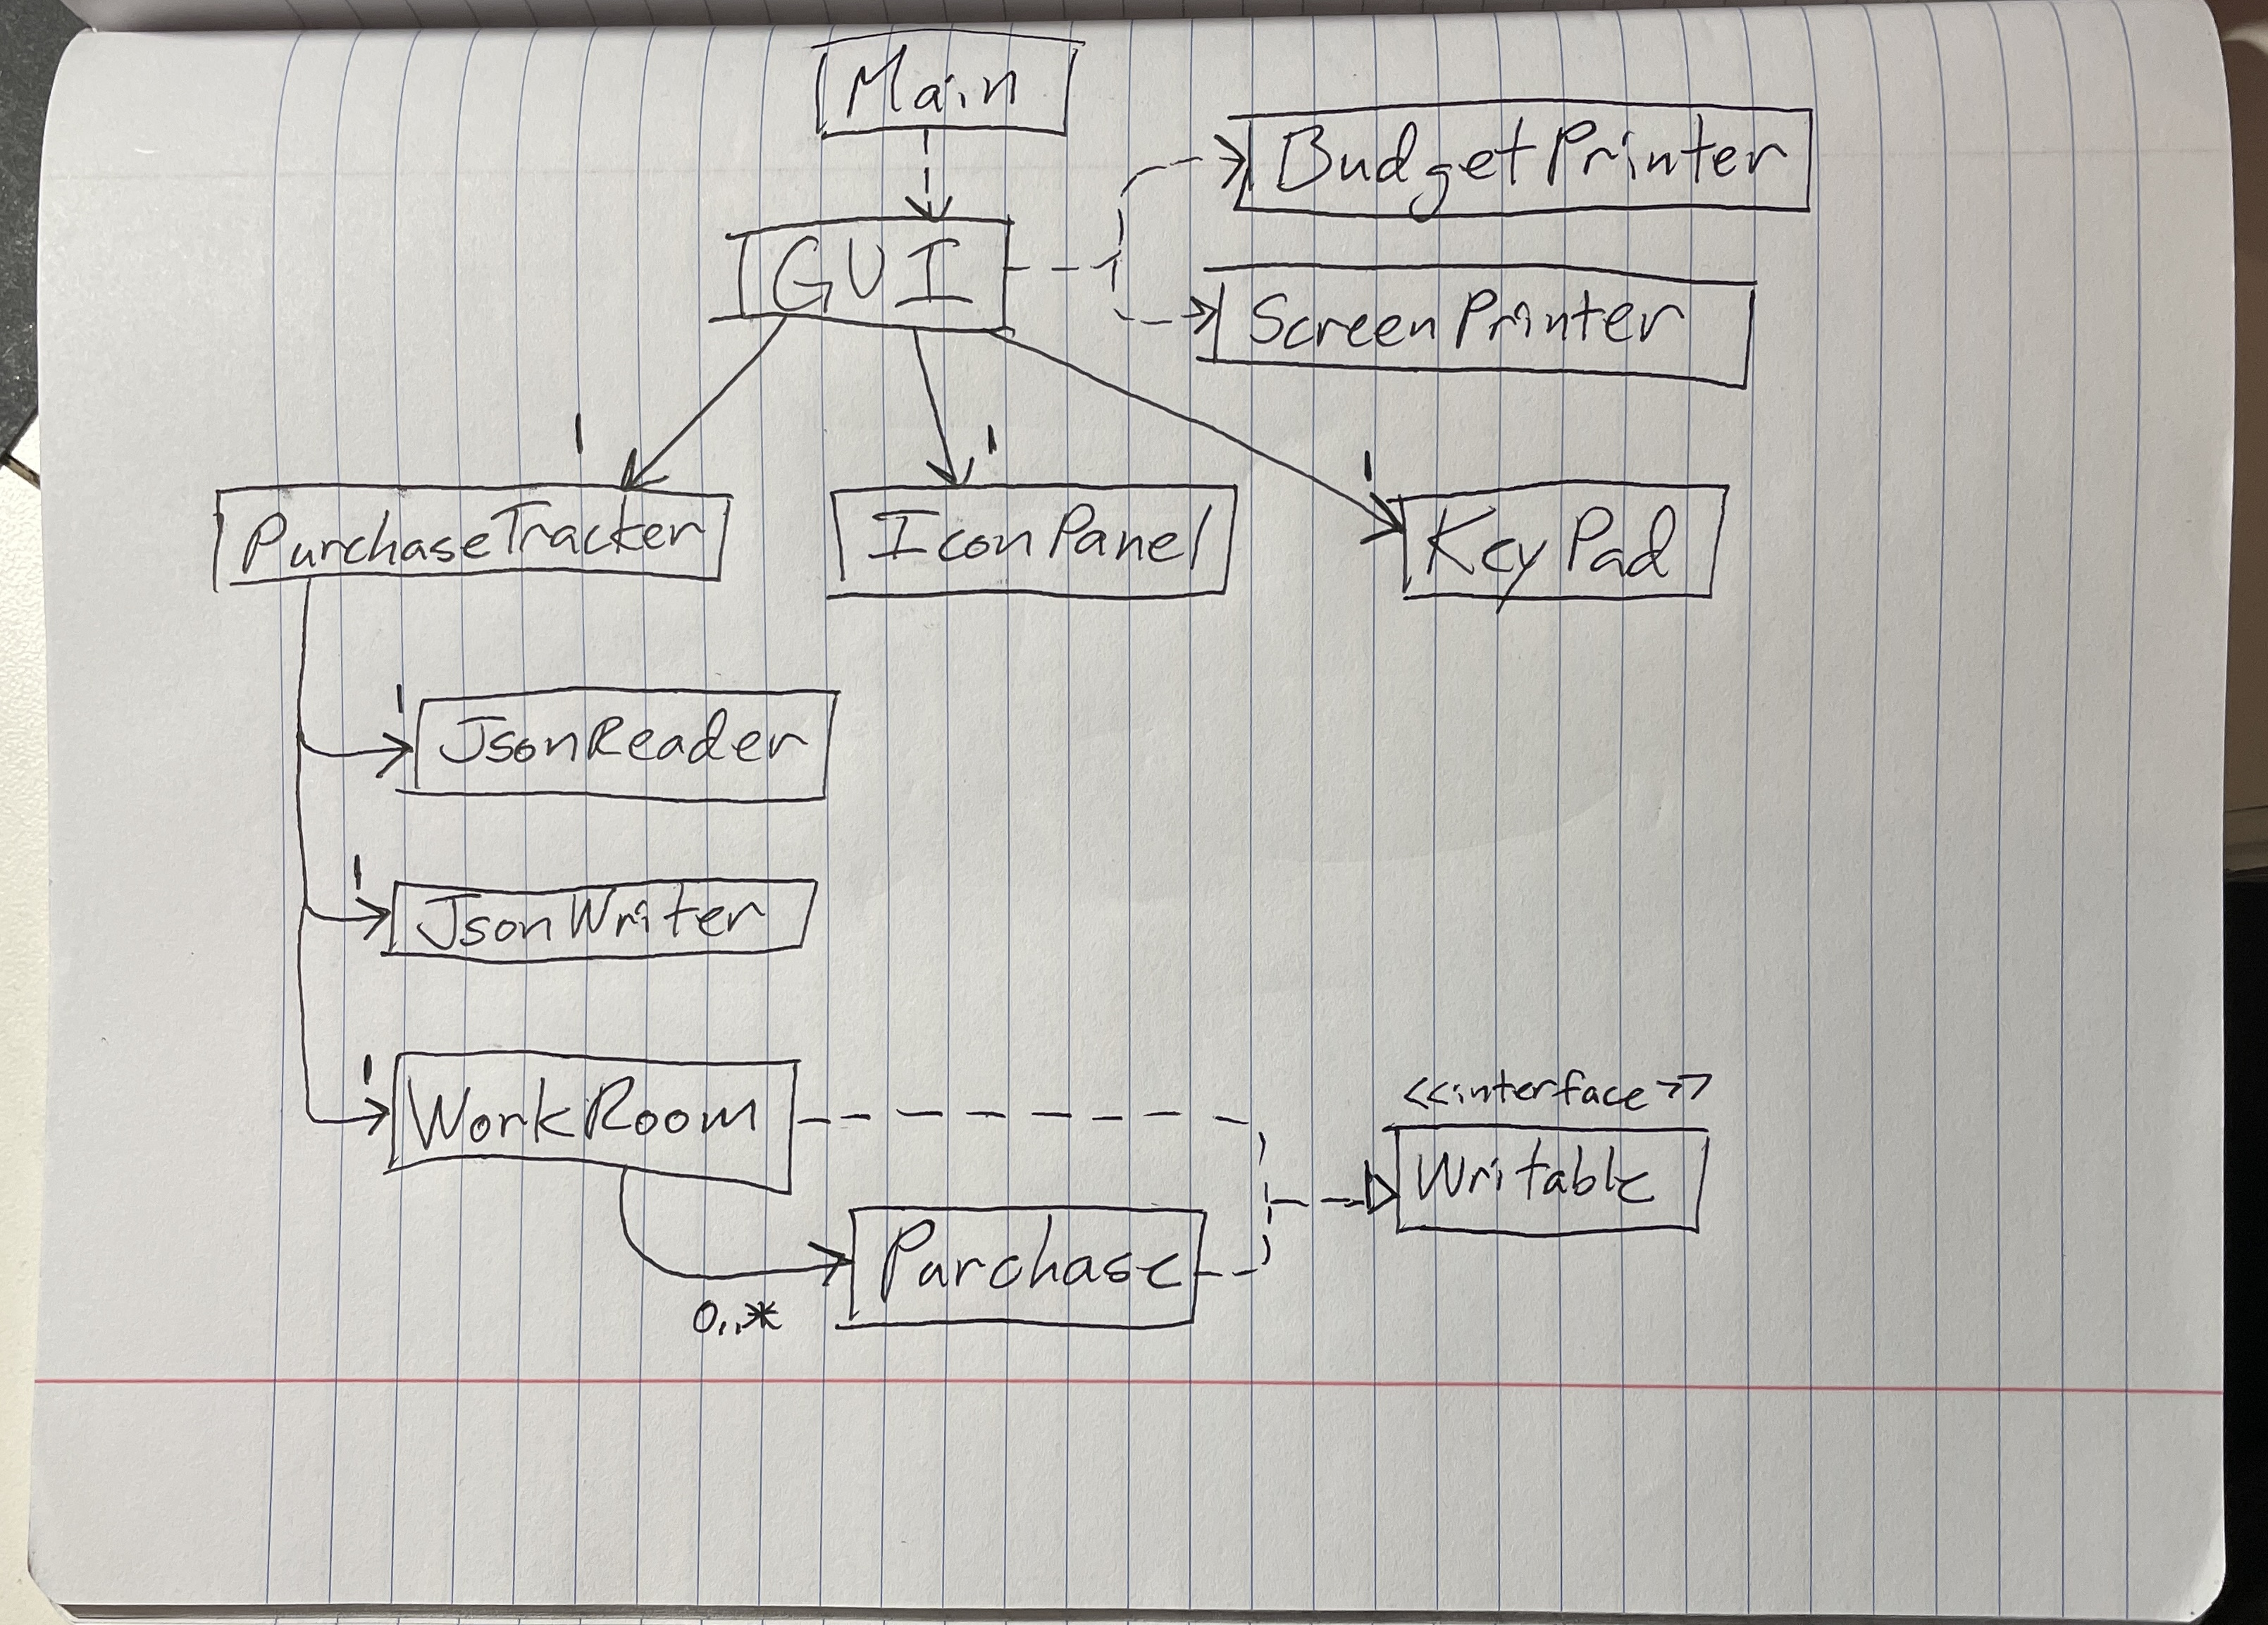 Main
BudgetPrinter
GUI
ScreenPrinter
1
1
1
PurchaseTracker
IconPanel
KeyPad
1
JsonReader
1
JsonWriter
1
WorkRoom
<<interface>>
Writable
Purchase
0..*